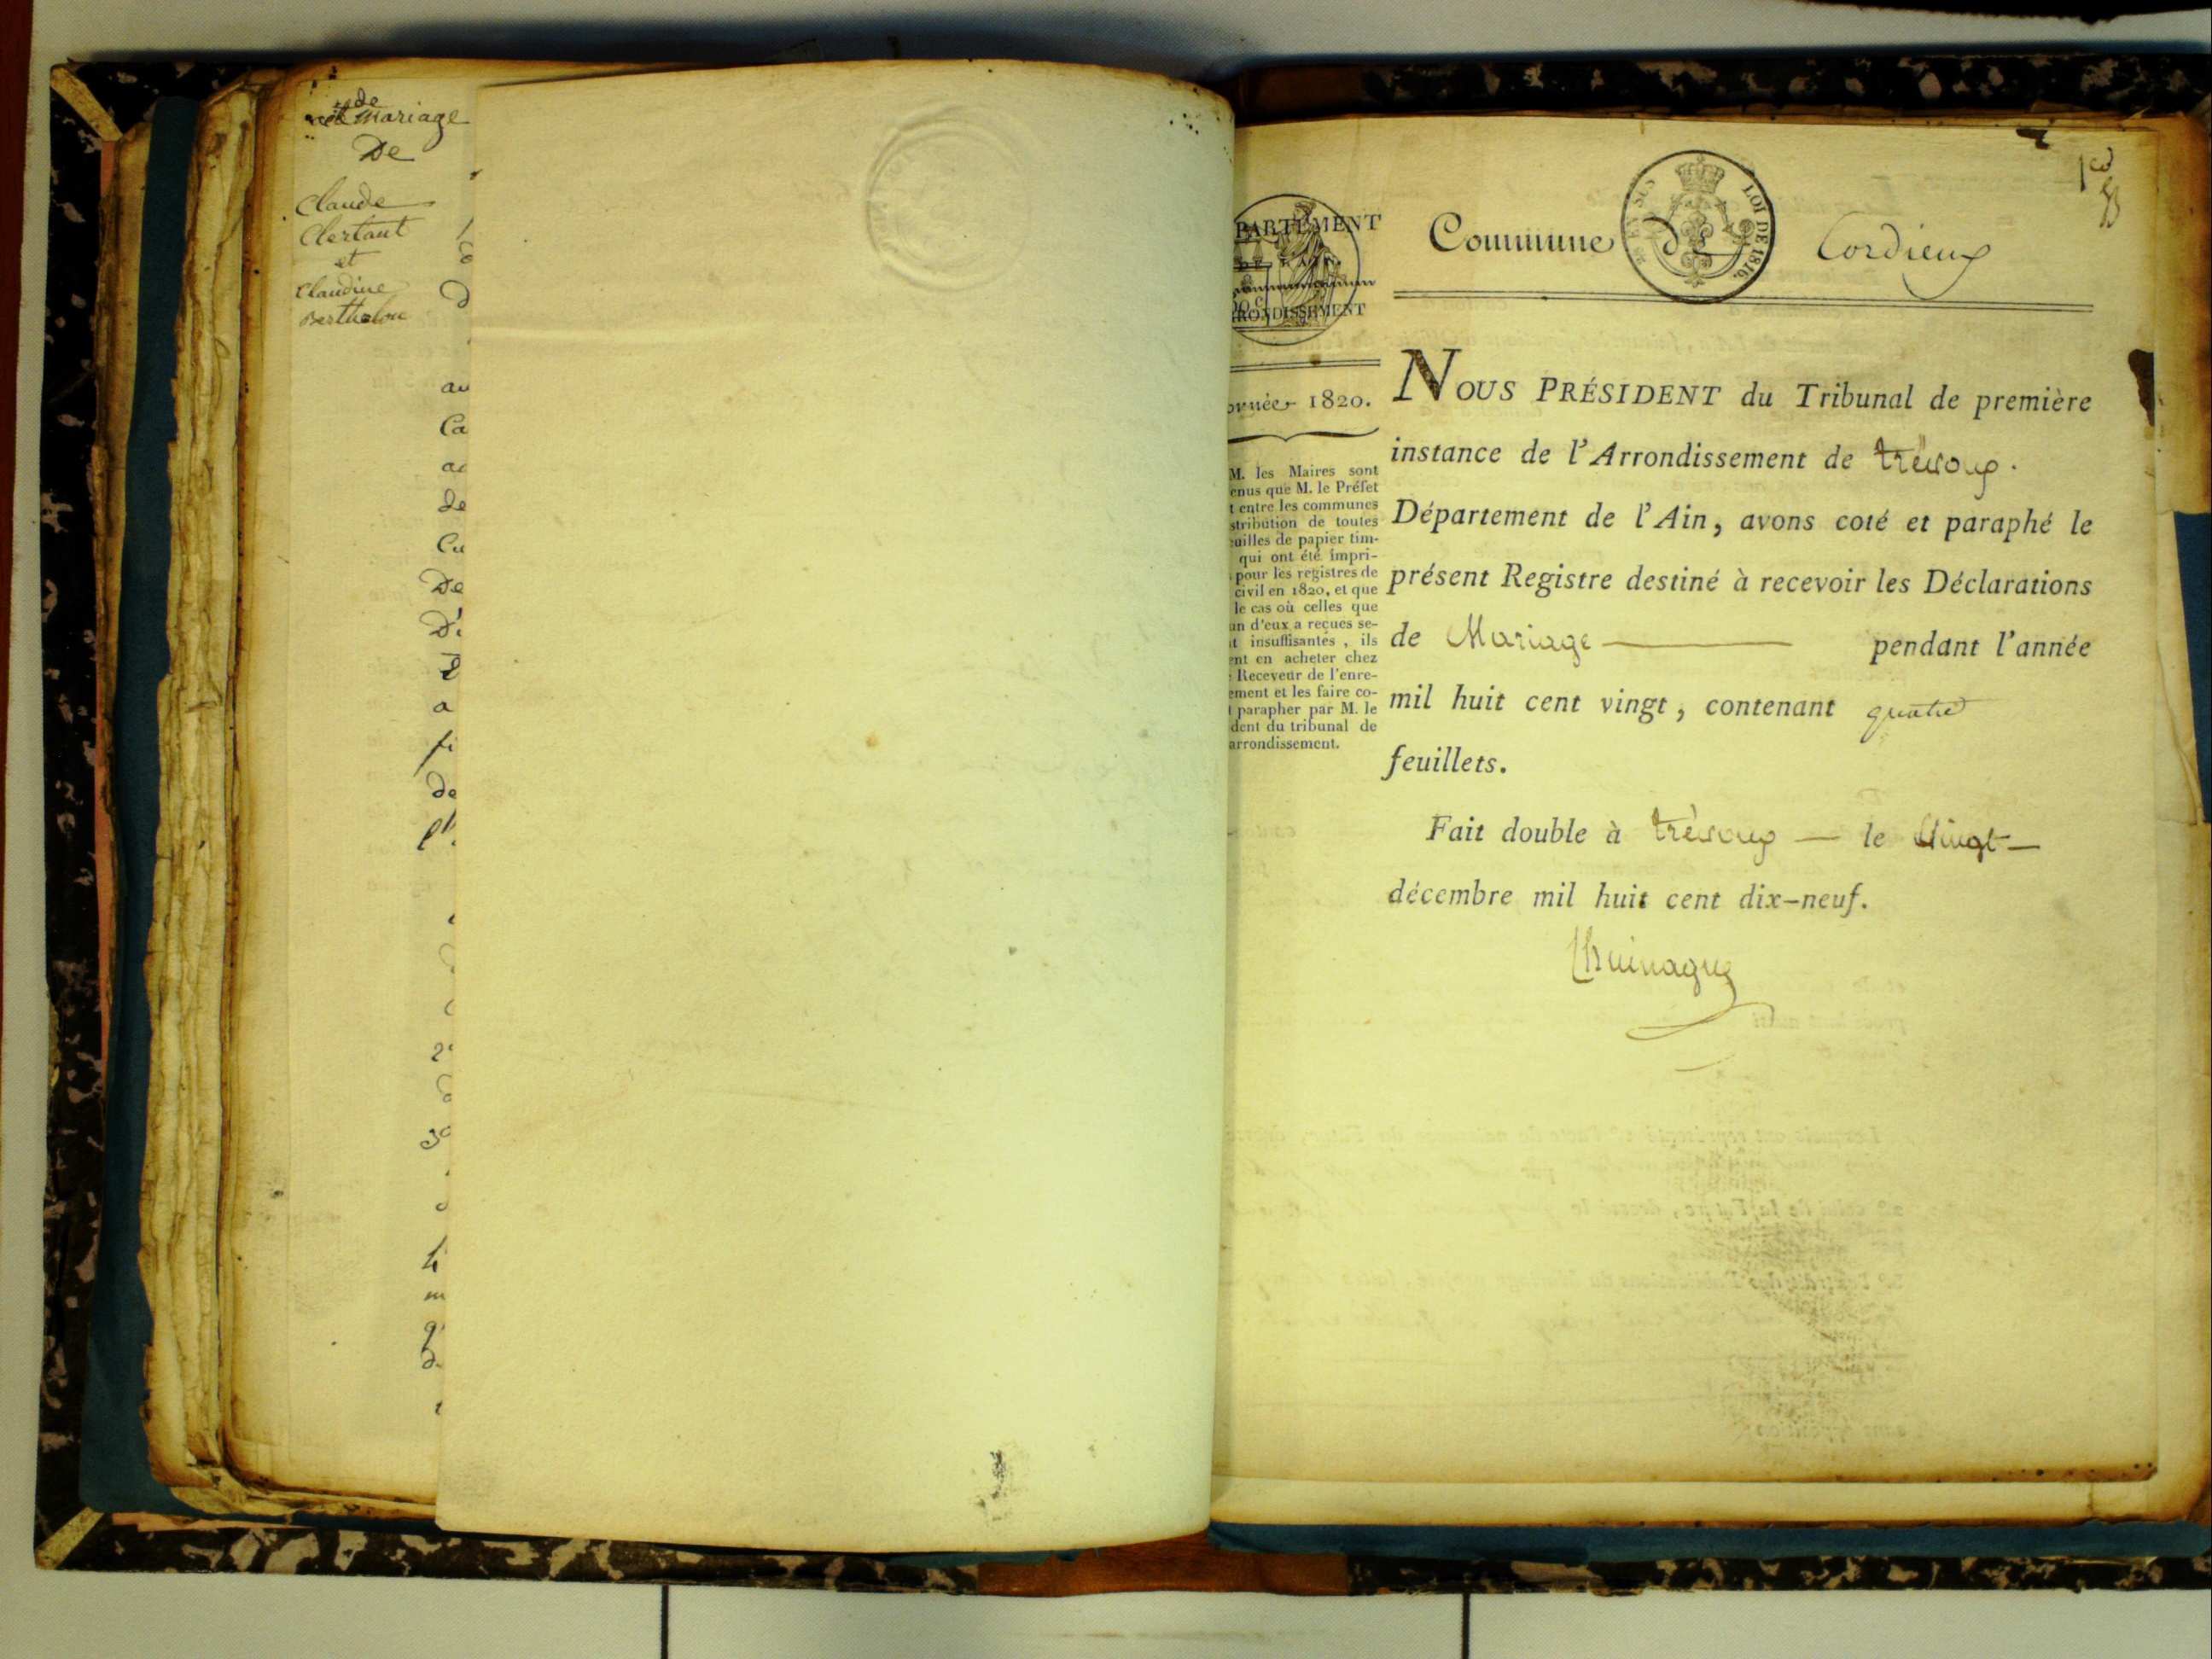 de
mariage
De
Claude
Clertant
et
Claudine
Berthelon
au
Ca
de
Cu
De
a
fi
de
2°
3°
PARTEMENT
DE L'AIN
RONDISSEMENT
Année 1820.
M. les Maires sont
enus que M. le Préfet
t entre les communes
stribution de toutes
euilles de papier tim-
qui ont été impri-
pour les registres de
civil en 1820, et que
le cas où celles que
un d'eux a reçues se-
t insuffisantes, ils
ent en acheter chez
Receveur de l'enre-
ement et les faire co-
t parapher par M. le
dent du tribunal de
arrondissement.
Commune de Cordieux
EN SUS LOI DE 1816.
NOUS PRÉSIDENT du Tribunal de première
instance de l'Arrondissement de trévoux.
Département de l'Ain, avons coté et paraphé le
présent Registre destiné à recevoir les Déclarations
de Mariage — pendant l'année
mil huit cent vingt, contenant quatre
feuillets.
Fait double à trévoux — le Vingt —
décembre mil huit cent dix-neuf.